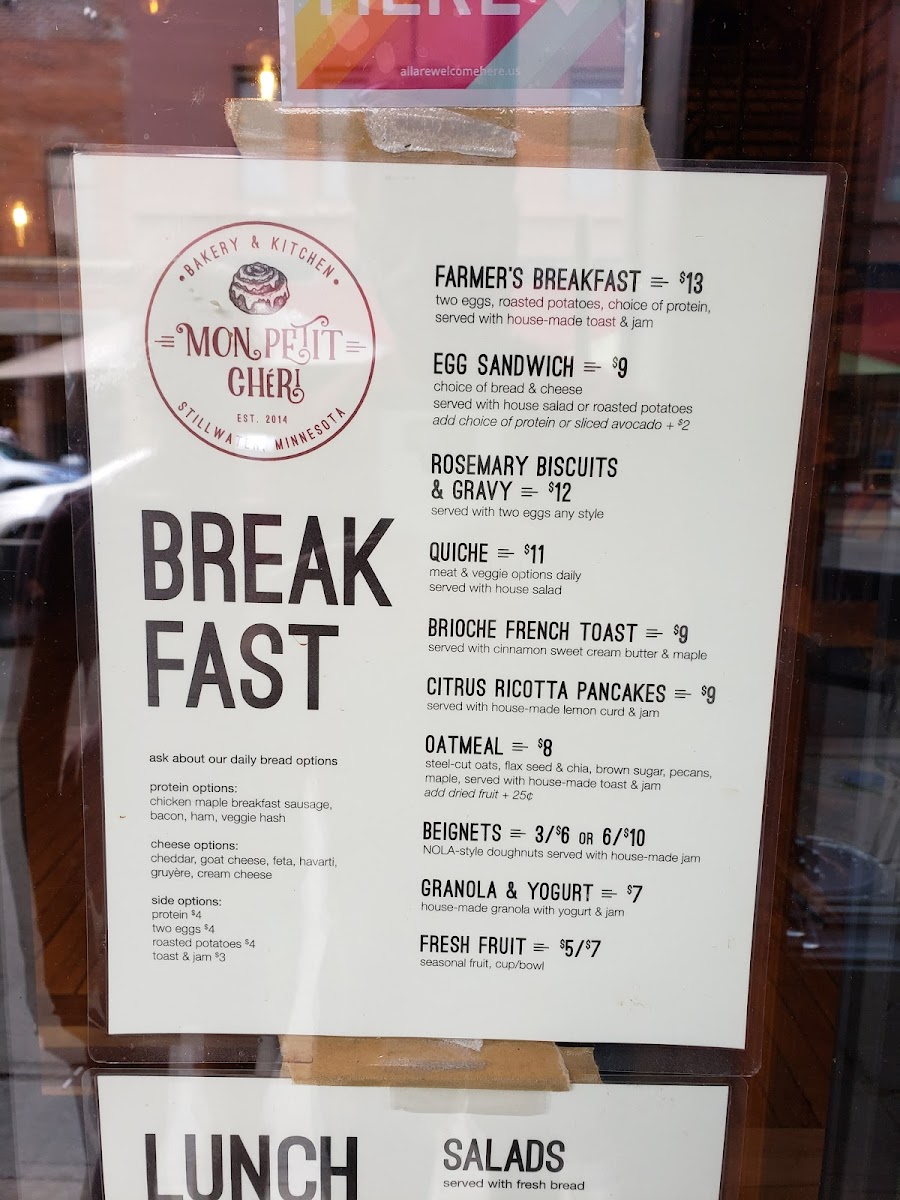 HERE
allarewelcomehere.us
• BAKERY & KITCHEN •
MON PETIT
CHéRI
EST. 2014
STILLWATER, MINNESOTA
BREAK
FAST
ask about our daily bread options
protein options:
chicken maple breakfast sausage,
bacon, ham, veggie hash
cheese options:
cheddar, goat cheese, feta, havarti,
gruyère, cream cheese
side options:
protein $4
two eggs $4
roasted potatoes $4
toast & jam $3
FARMER'S BREAKFAST = $13
two eggs, roasted potatoes, choice of protein,
served with house-made toast & jam
EGG SANDWICH = $9
choice of bread & cheese
served with house salad or roasted potatoes
add choice of protein or sliced avocado + $2
ROSEMARY BISCUITS
& GRAVY = $12
served with two eggs any style
QUICHE = $11
meat & veggie options daily
served with house salad
BRIOCHE FRENCH TOAST = $9
served with cinnamon sweet cream butter & maple
CITRUS RICOTTA PANCAKES = $9
served with house-made lemon curd & jam
OATMEAL = $8
steel-cut oats, flax seed & chia, brown sugar, pecans,
maple, served with house-made toast & jam
add dried fruit + 25¢
BEIGNETS = 3/$6 OR 6/$10
NOLA-style doughnuts served with house-made jam
GRANOLA & YOGURT = $7
house-made granola with yogurt & jam
FRESH FRUIT = $5/$7
seasonal fruit, cup/bowl
LUNCH
SALADS
served with fresh bread